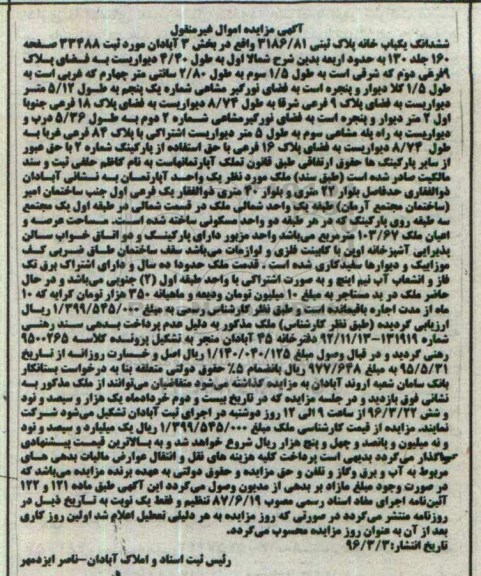 آگهی مزایده اموال غیرمنقول
ششدانگ یکباب خانه پلاک ثبتی ۳۱۸۶/۸۱ واقع در بخش ۳ آبادان مورد ثبت ۳۳۴۸۸ صفحه
۱۶۰ جلد ۱۳۰ به حدود اربعه بدین شرح شمالا اول به طول ۴/۴۰ دیواریست به فضای پلاک
۹فرعی دوم که شرقی است به طول ۱/۵ سوم به طول ۲/۸۰ سانتی متر چهارم که غربی است به
طول ۱/۵ کلا دیوار و پنجره است به فضای نورگیر مشاعی شماره یک پنجم به طول ۵/۱۲ متر
دیواریست به فضای پلاک ۹ فرعی شرقا به طول ۸/۷۴ دیواریست به فضای پلاک ۱۸ فرعی جنوبا
اول ۲ متر دیوار و پنجره است به فضای نورگیرمشاعی شماره ۲ دوم به طول ۵/۳۶ درب و
دیواریست به راه پله مشاعی سوم به طول ۵ متر دیواریست اشتراکی با پلاک ۸۴ فرعی غربا به
طول ۸/۷۴ دیواریست به فضای پلاک ۱۶ فرعی با حق استفاده از پارکینگ شماره ۲ با حق عبور
از سایر پارکینگ ها حقوق ارتفاقی طبق قانون تملک آپارتمانهاست به نام کاظم حلفی ثبت و سند
مالکیت صادر شده است (طبق سند) ملک مورد نظر یک واحد آپارتمان به نشانی آبادان
ذوالفقاری حدفاصل بلوار ۲۲ متری و بلوار ۴۰ متری ذوالفقار یک فرعی اول جنب ساختمان امیر
(ساختمان مجتمع آرمان) طبقه یک واحد شمالی ملک در قسمت شمالی در طبقه اول یک مجتمع
سه طبقه روی پارکینگ که در هر طبقه دو واحد مسکونی ساخته شده است. مساحت عرصه و
اعیان ملک ۱۰۳/۶۷ مترمربع می‌باشد واحد مزبور دارای پارکینگ و دو اتاق خواب سالن
پذیرایی آشپزخانه اوپن با کابینت فلزی و لوازمات می‌باشد سقف ساختمان طاق ضربی کف
موزاییک و دیوارها سفیدکاری شده است. قدمت ملک حدودا ده سال و دارای اشتراک برق تک
فاز و انشعاب آب نیم اینچ و به صورت اشتراکی با واحد طبقه اول (۲) جنوبی می‌باشد و در حال
حاضر ملک در ید مستاجر به مبلغ ۱۰ میلیون تومان ودیعه و ماهیانه ۳۵۰ هزار تومان کرایه که ۱۰
ماه از مدت اجاره باقیمانده است و طبق نظر کارشناس رسمی به مبلغ ۱/۳۹۹/۵۴۵/۰۰۰ ریال
ارزیابی گردیده (طبق نظر کارشناس) ملک مذکور به دلیل عدم پرداخت بدهی سند رهنی
شماره ۱۳۱۹۱۹-۹۲/۱۱/۱۳ دفترخانه ۴۵ آبادان منجر به تشکیل پرونده کلاسه ۹۵۰۰۲۶۵
رهنی گردید و در قبال وصول مبلغ ۱/۱۳۰/۰۴۰/۱۲۵ ریال اصل و خسارت روزانه از تاریخ
۹۵/۵/۳۱ به مبلغ ۹۷۷/۶۴۸ ریال بانضمام ۵٪ حقوق دولتی متعلقه بنا به درخواست بستانکار
بانک سامان شعبه اروند آبادان به مزایده گذاشته می‌شود متقاضیان می‌توانند از ملک مذکور به
نشانی فوق بازدید و در جلسه مزایده که در تاریخ بیست و دوم خردادماه یک هزار و سیصد و نود
و شش ۹۶/۳/۲۲ از ساعت ۹ الی ۱۲ روز دوشنبه در اجرای ثبت آبادان تشکیل می‌شود شرکت
نمایند. مزایده از قیمت کارشناسی ملک مبلغ ۱/۳۹۹/۵۴۵/۰۰۰ ریال یک میلیارد و سیصد و نود
و نه میلیون و پانصد و چهل و پنج هزار ریال شروع خواهد شد و به بالاترین قیمت پیشنهادی
واگذار می‌گردد بدیهی است پرداخت کلیه هزینه های نقل و انتقال عوارض مالیات بدهی های
مربوط به آب و برق وگاز و تلفن و حق مزایده و حقوق دولتی به عهده برنده مزایده می‌باشد که
در صورت وجود مبلغ مازاد بر بدهی از مدیون وصول می‌گردد این آگهی طبق ماده ۱۲۱ و ۱۲۲
آئین‌نامه اجرای مفاد اسناد رسمی مصوب ۸۷/۶/۱۹ تنظیم و فقط یک نوبت به تاریخ ذیل در
روزنامه منتشر می‌گردد در صورتی که روز مزایده به هر دلیلی تعطیل اعلام شد اولین روز کاری
بعد از آن به عنوان روز مزایده محسوب می‌گردد.
تاریخ انتشار: ۹۶/۳/۳
رئیس ثبت اسناد و املاک آبادان-ناصر ایزدمهر